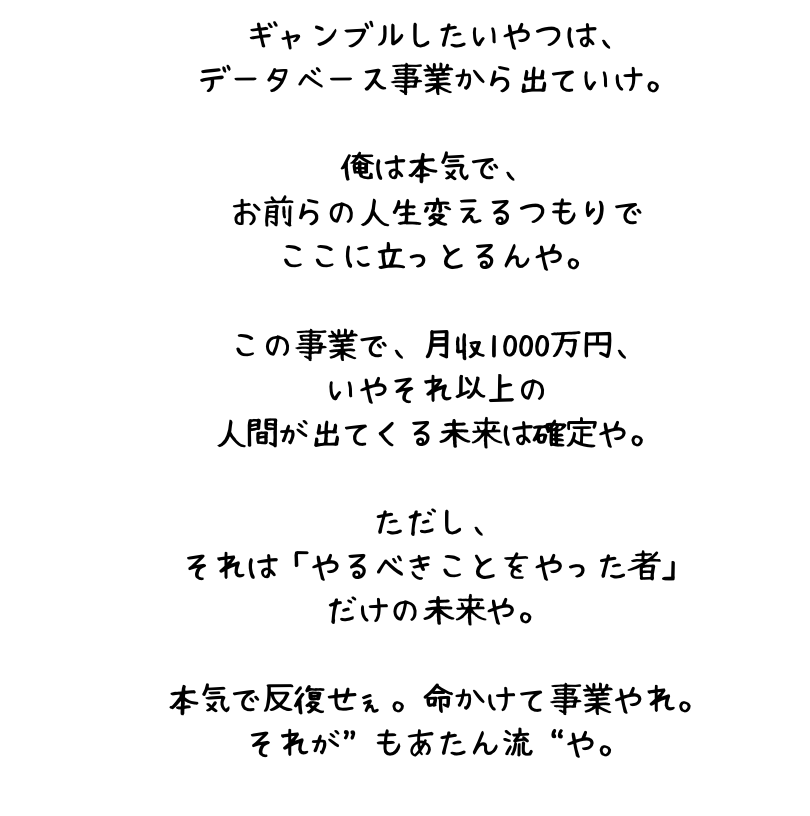 ギャンブルしたいやつは、
データベース事業から出ていけ。
俺は本気で、
お前らの人生変えるつもりで
ここに立っとるんや。
この事業で、月収1000万円、
いやそれ以上の
人間が出てくる未来は確定や。
ただし、
それは「やるべきことをやった者」
だけの未来や。
本気で反復せぇ。命かけて事業やれ。
それが”もあたん流“や。